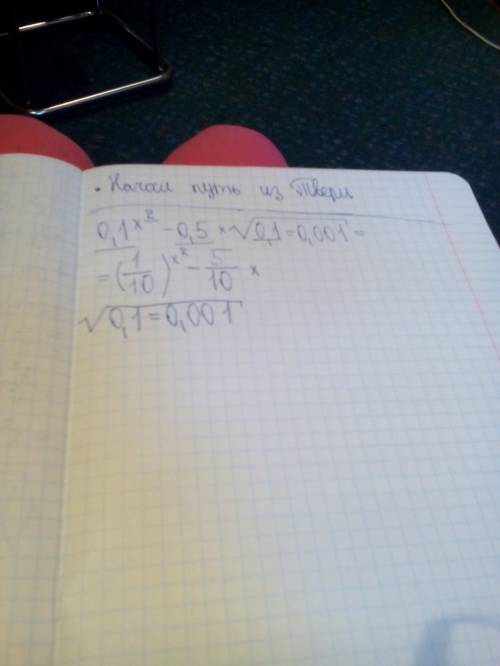 . Начали путь из Твери
0,1^x² - 0,5 x √0,1 = 0,001 =
= (1/10)^x² - 5/10 x
√0,1 = 0,001